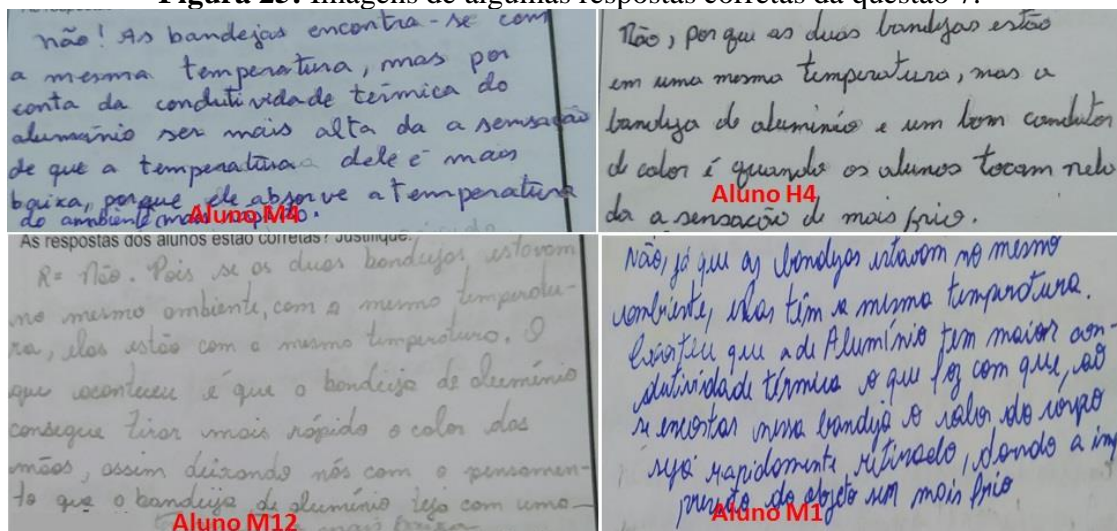 Figura 25. Imagens de algumas respostas corretas da questão 7.
não! As bandejas encontra-se com
a mesma temperatura, mas por
conta da condutividade térmica do
alumínio ser mais alta da a sensação
de que a temperatura dele é mais
baixa, porque ele absorve a temperatura
do ambiente mais rápido.
Aluno M4
Não, por que as duas bandejas estão
em uma mesma temperatura, mas a
bandeja de alumínio e um bom condutor
de calor é quando os alunos tocam nela
da a sensação de mais frio.
Aluno H4
As respostas dos alunos estão corretas? Justifique.
R= Não. Pois se as duas bandejas estavam
no mesmo ambiente, com a mesma temperatu-
ra, elas estão com a mesma temperatura. O
que aconteceu é que a bandeja de alumínio
consegue tirar mais rápido o calor das
mãos, assim deixando nós com o pensamen-
to que a bandeja de alumínio teja com uma
Aluno M12
Não, já que as bandejas estavam no mesmo
ambiente, elas têm a mesma temperatura.
que a de Alumínio tem maior con-
dutividade térmica o que faz com que, ao
se encostar nessa bandeja o calor do corpo
seja rapidamente retirado, dando a im
do objeto ser mais frio
Aluno M1